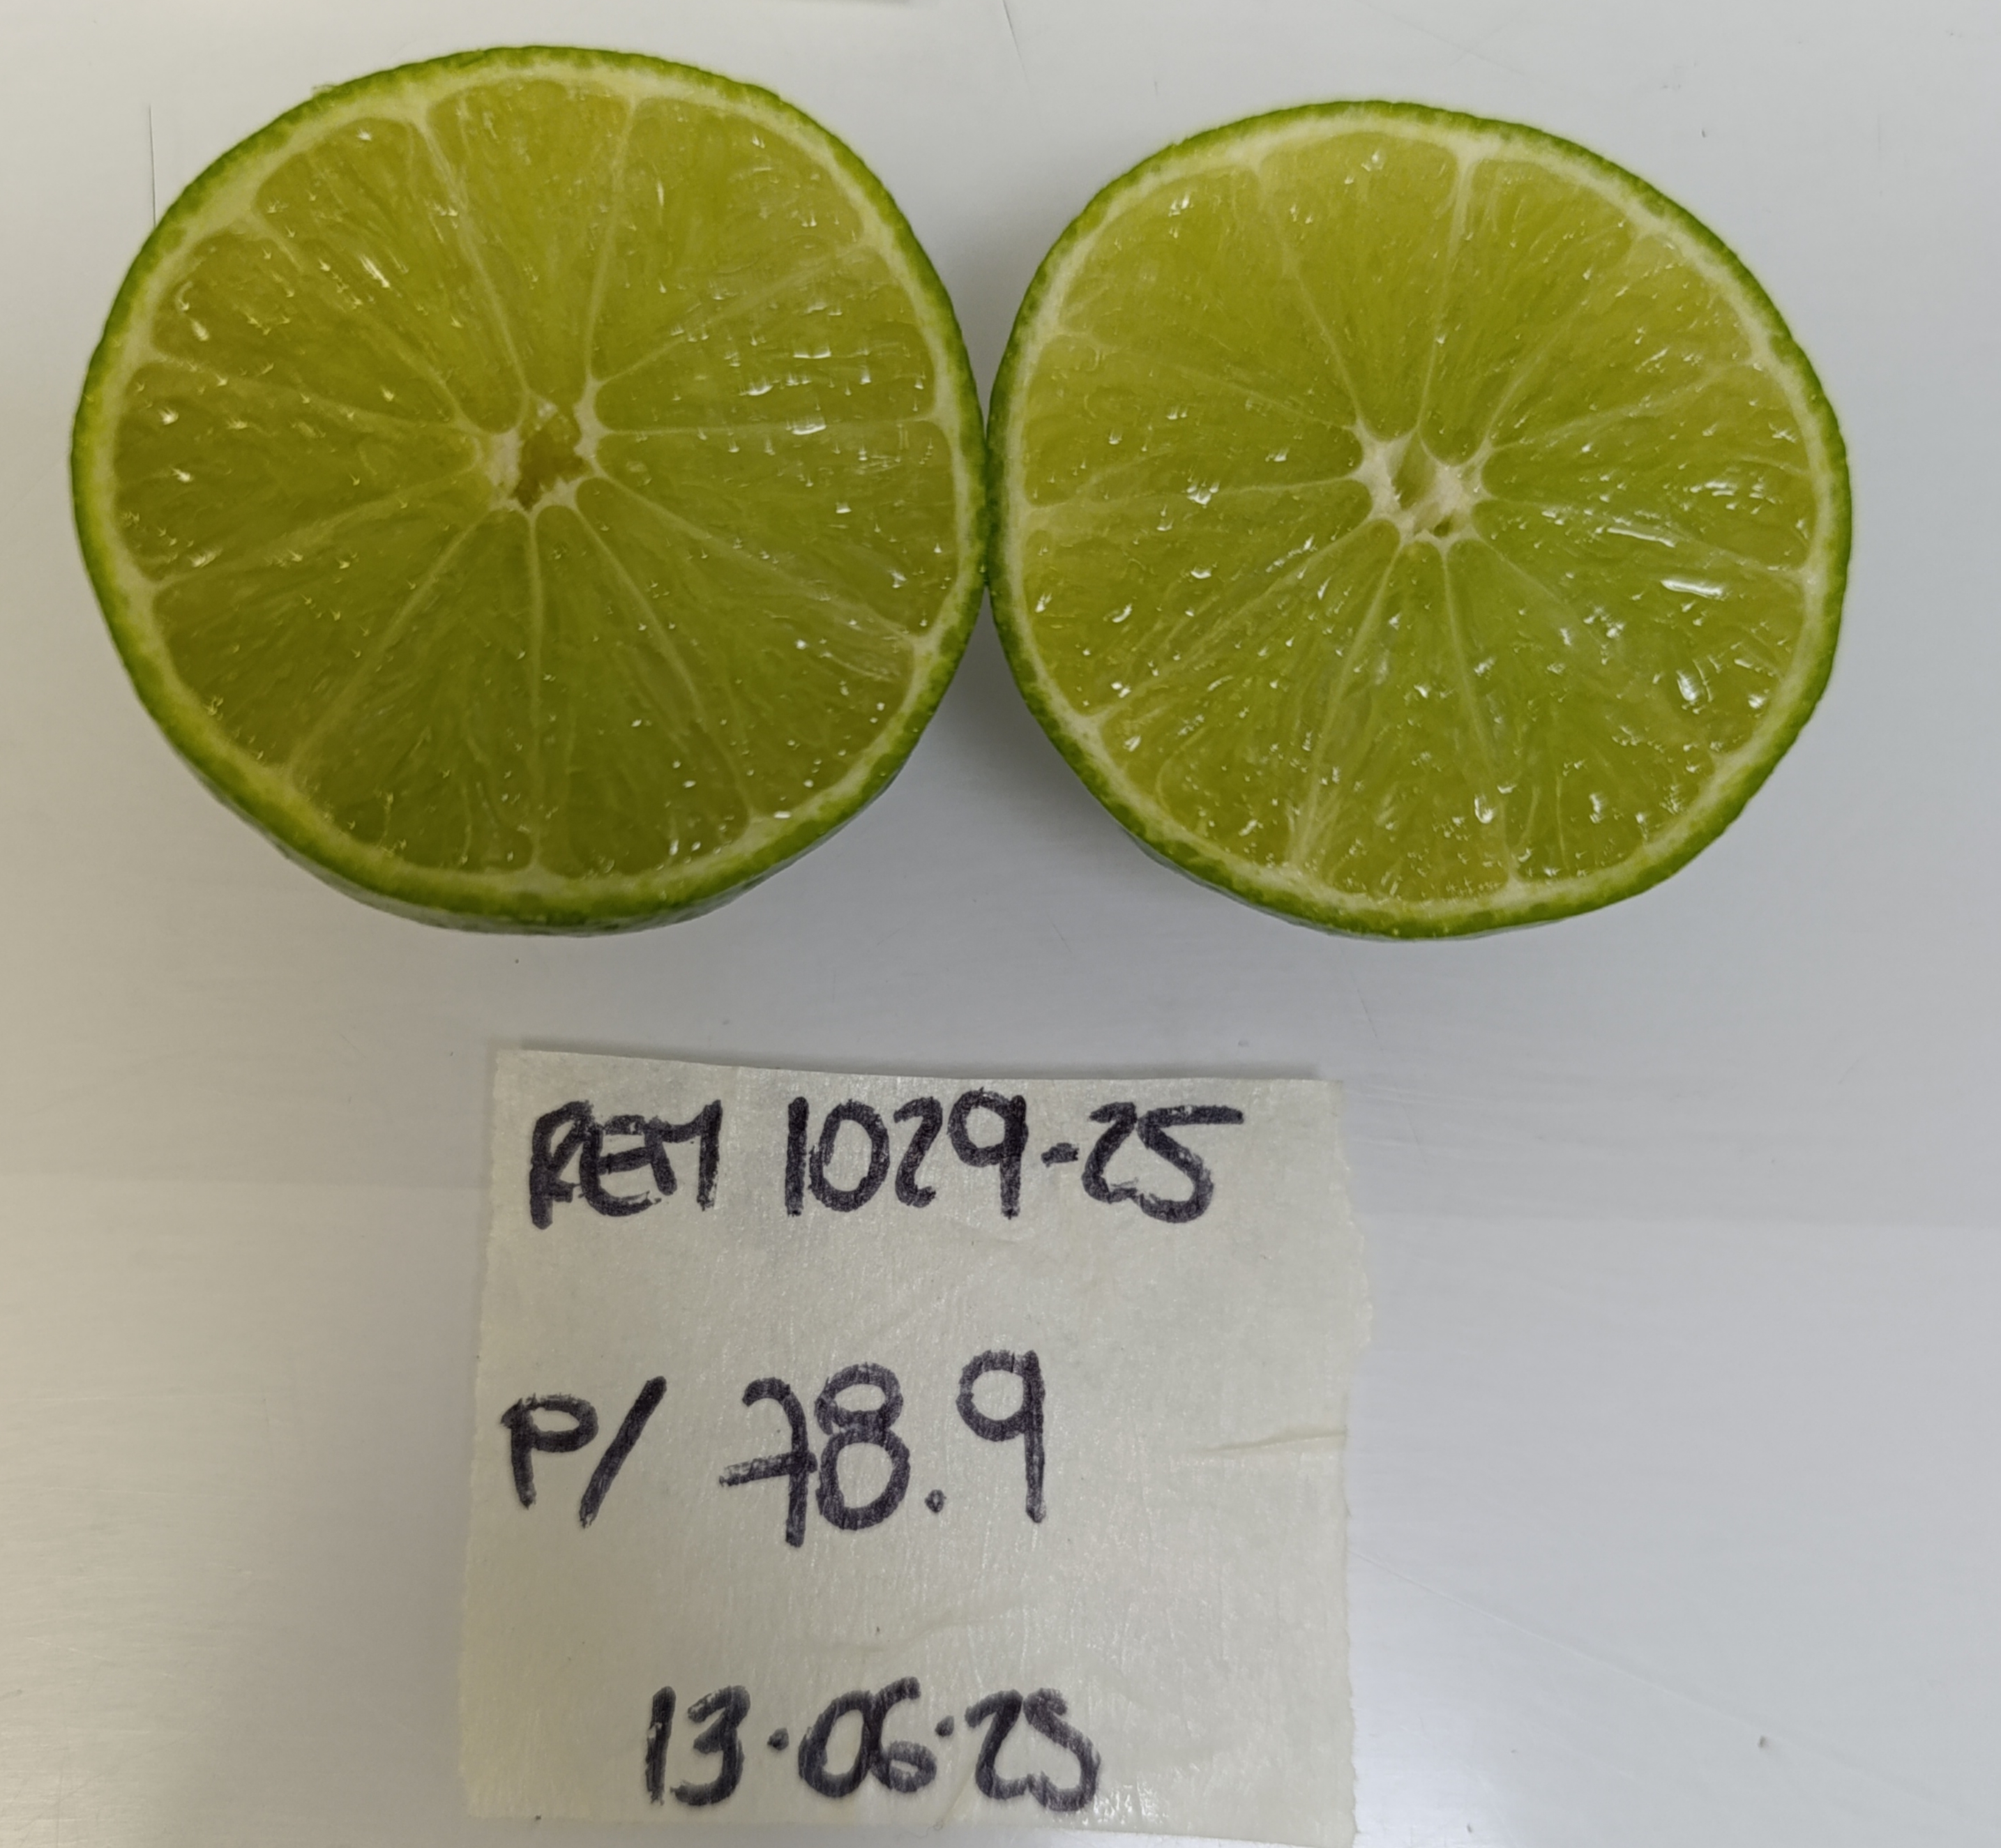 REM 1029-25
P/ 78.9
13.06.25